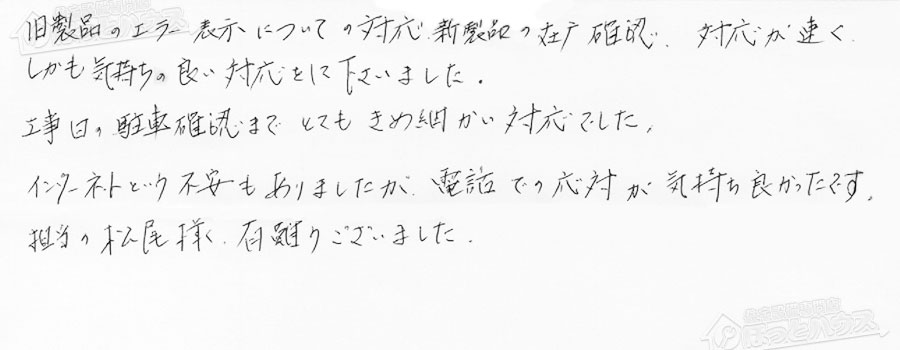 旧製品のエラー表示についての対応.新製品の在庫確認、対応が速く
しかも気持ちの良い対応をして下さいました。
工事日の駐車確認まで とても きめ細かい対応でした。
インターネットという不安もありましたが、電話での応対が気持ち良かったです。
担当の松尾様、有難うございました。
ほっとハウス